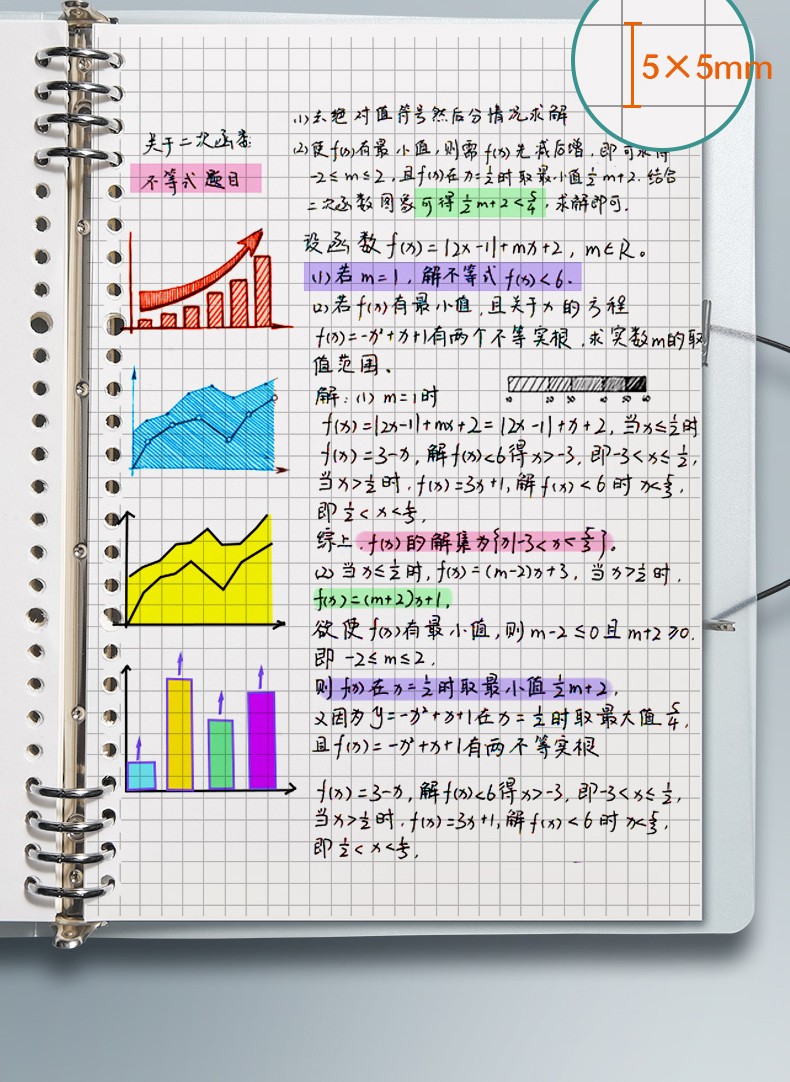 5×5mm
关于二次函数
不等式题目
(1)去绝对值符号然后分情况求解
(2)使f(x)有最小值，则需f(x)先减后增，即可求得
-2≤m≤2，且f(x)在x=½时取最小值½m+2.结合
二次函数图象可得½m+2<5/4，求解即可.
设函数f(x)=|2x-1|+mx+2，m∈R。
(1)若m=1，解不等式f(x)<6.
(2)若f(x)有最小值，且关于x的方程
f(x)=-x²+x+1有两个不等实根，求实数m的取
值范围、
解：(1)m=1时
f(x)=|2x-1|+mx+2=|2x-1|+x+2，当x≤½时
f(x)=3-x，解f(x)<6得x>-3，即-3<x≤½，
当x>½时，f(x)=3x+1，解f(x)<6时x<5/3，
即½<x<5/3，
综上，f(x)的解集为{x|-3<x<5/3}。
(2)当x≤½时，f(x)=(m-2)x+3，当x>½时，
f(x)=(m+2)x+1，
欲使f(x)有最小值，则m-2≤0且m+2≥0.
即-2≤m≤2，
则f(x)在x=½时取最小值½m+2，
又因为y=-x²+x+1在x=½时取最大值5/4，
且f(x)=-x²+x+1有两不等实根
f(x)=3-x，解f(x)<6得x>-3，即-3<x≤½，
当x>½时，f(x)=3x+1，解f(x)<6时x<5/3，
即½<x<5/3，